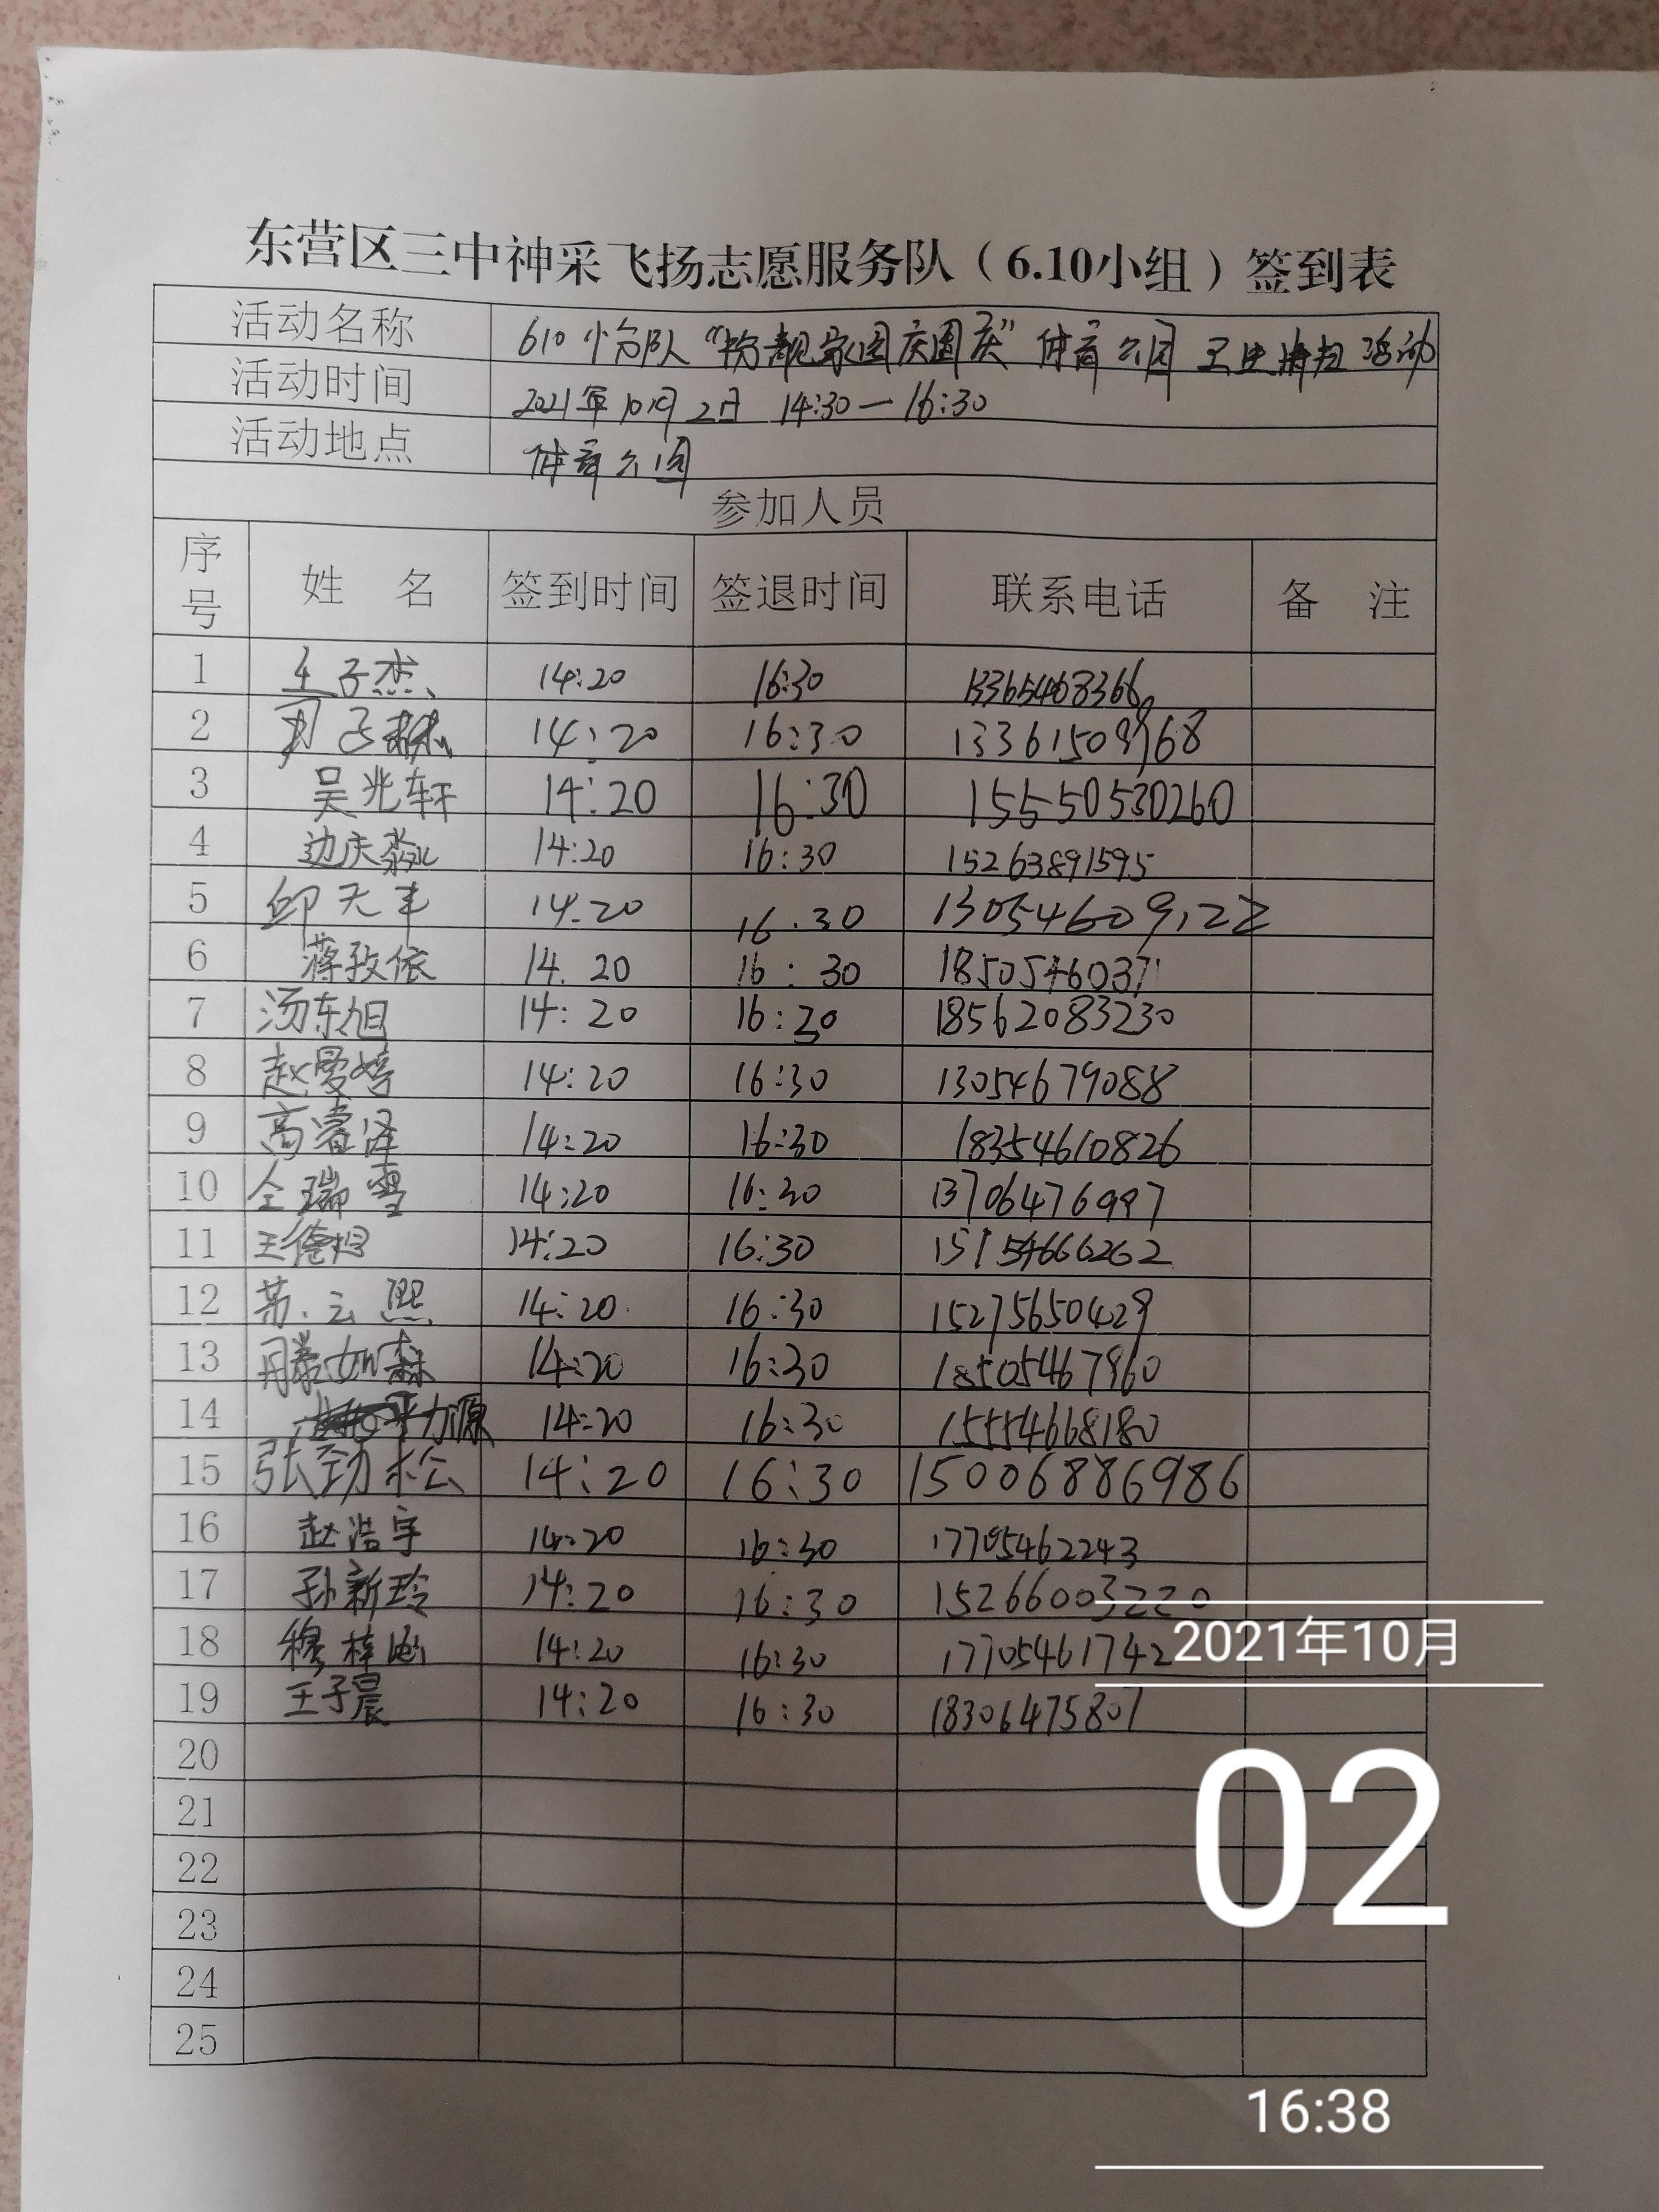 东营区三中神采飞扬志愿服务队（6.10小组）签到表
活动名称 610小分队“扮靓家园庆国庆”体育公园卫生清扫活动
活动时间 2021年10月2日 14:30—16:30
活动地点 体育公园
参加人员
序号 姓 名 签到时间 签退时间 联系电话 备 注
1 王子杰 14:20 16:30 13365468366
2 14:20 16:30
3 吴兆轩 14:20 16:30 15550530260
4 边庆淼 14:20 16:30 15263891595
5 邱天丰 14:20 16:30 13054609122
6 蒋孜依 14.20 16:30 18505460371
7 汤东旭 14:20 16:30 18562083230
8 赵曼婷 14:20 16:30 13054679088
9 高睿泽 14:20 16:30 18354610826
10 仝瑞雪 14:20 16:30 13706476997
11 王德 14:20 16:30 15154666262
12 苏云熙 14:20 16:30 15275650429
13 滕如森 14:20 16:30 18505467960
14 14:20 16:30 15554668180
15 张劲松 14:20 16:30 15006886986
16 赵浩宇 14:20 16:30 17705462243
17 孙新玲 14:20 16:30 15266003220
18 穆梓涵 14:20 16:30 17705461742
2021年10月
19 王子晨 14:20 16:30 18306475807
20
02
21
22
23
24
25
16:38